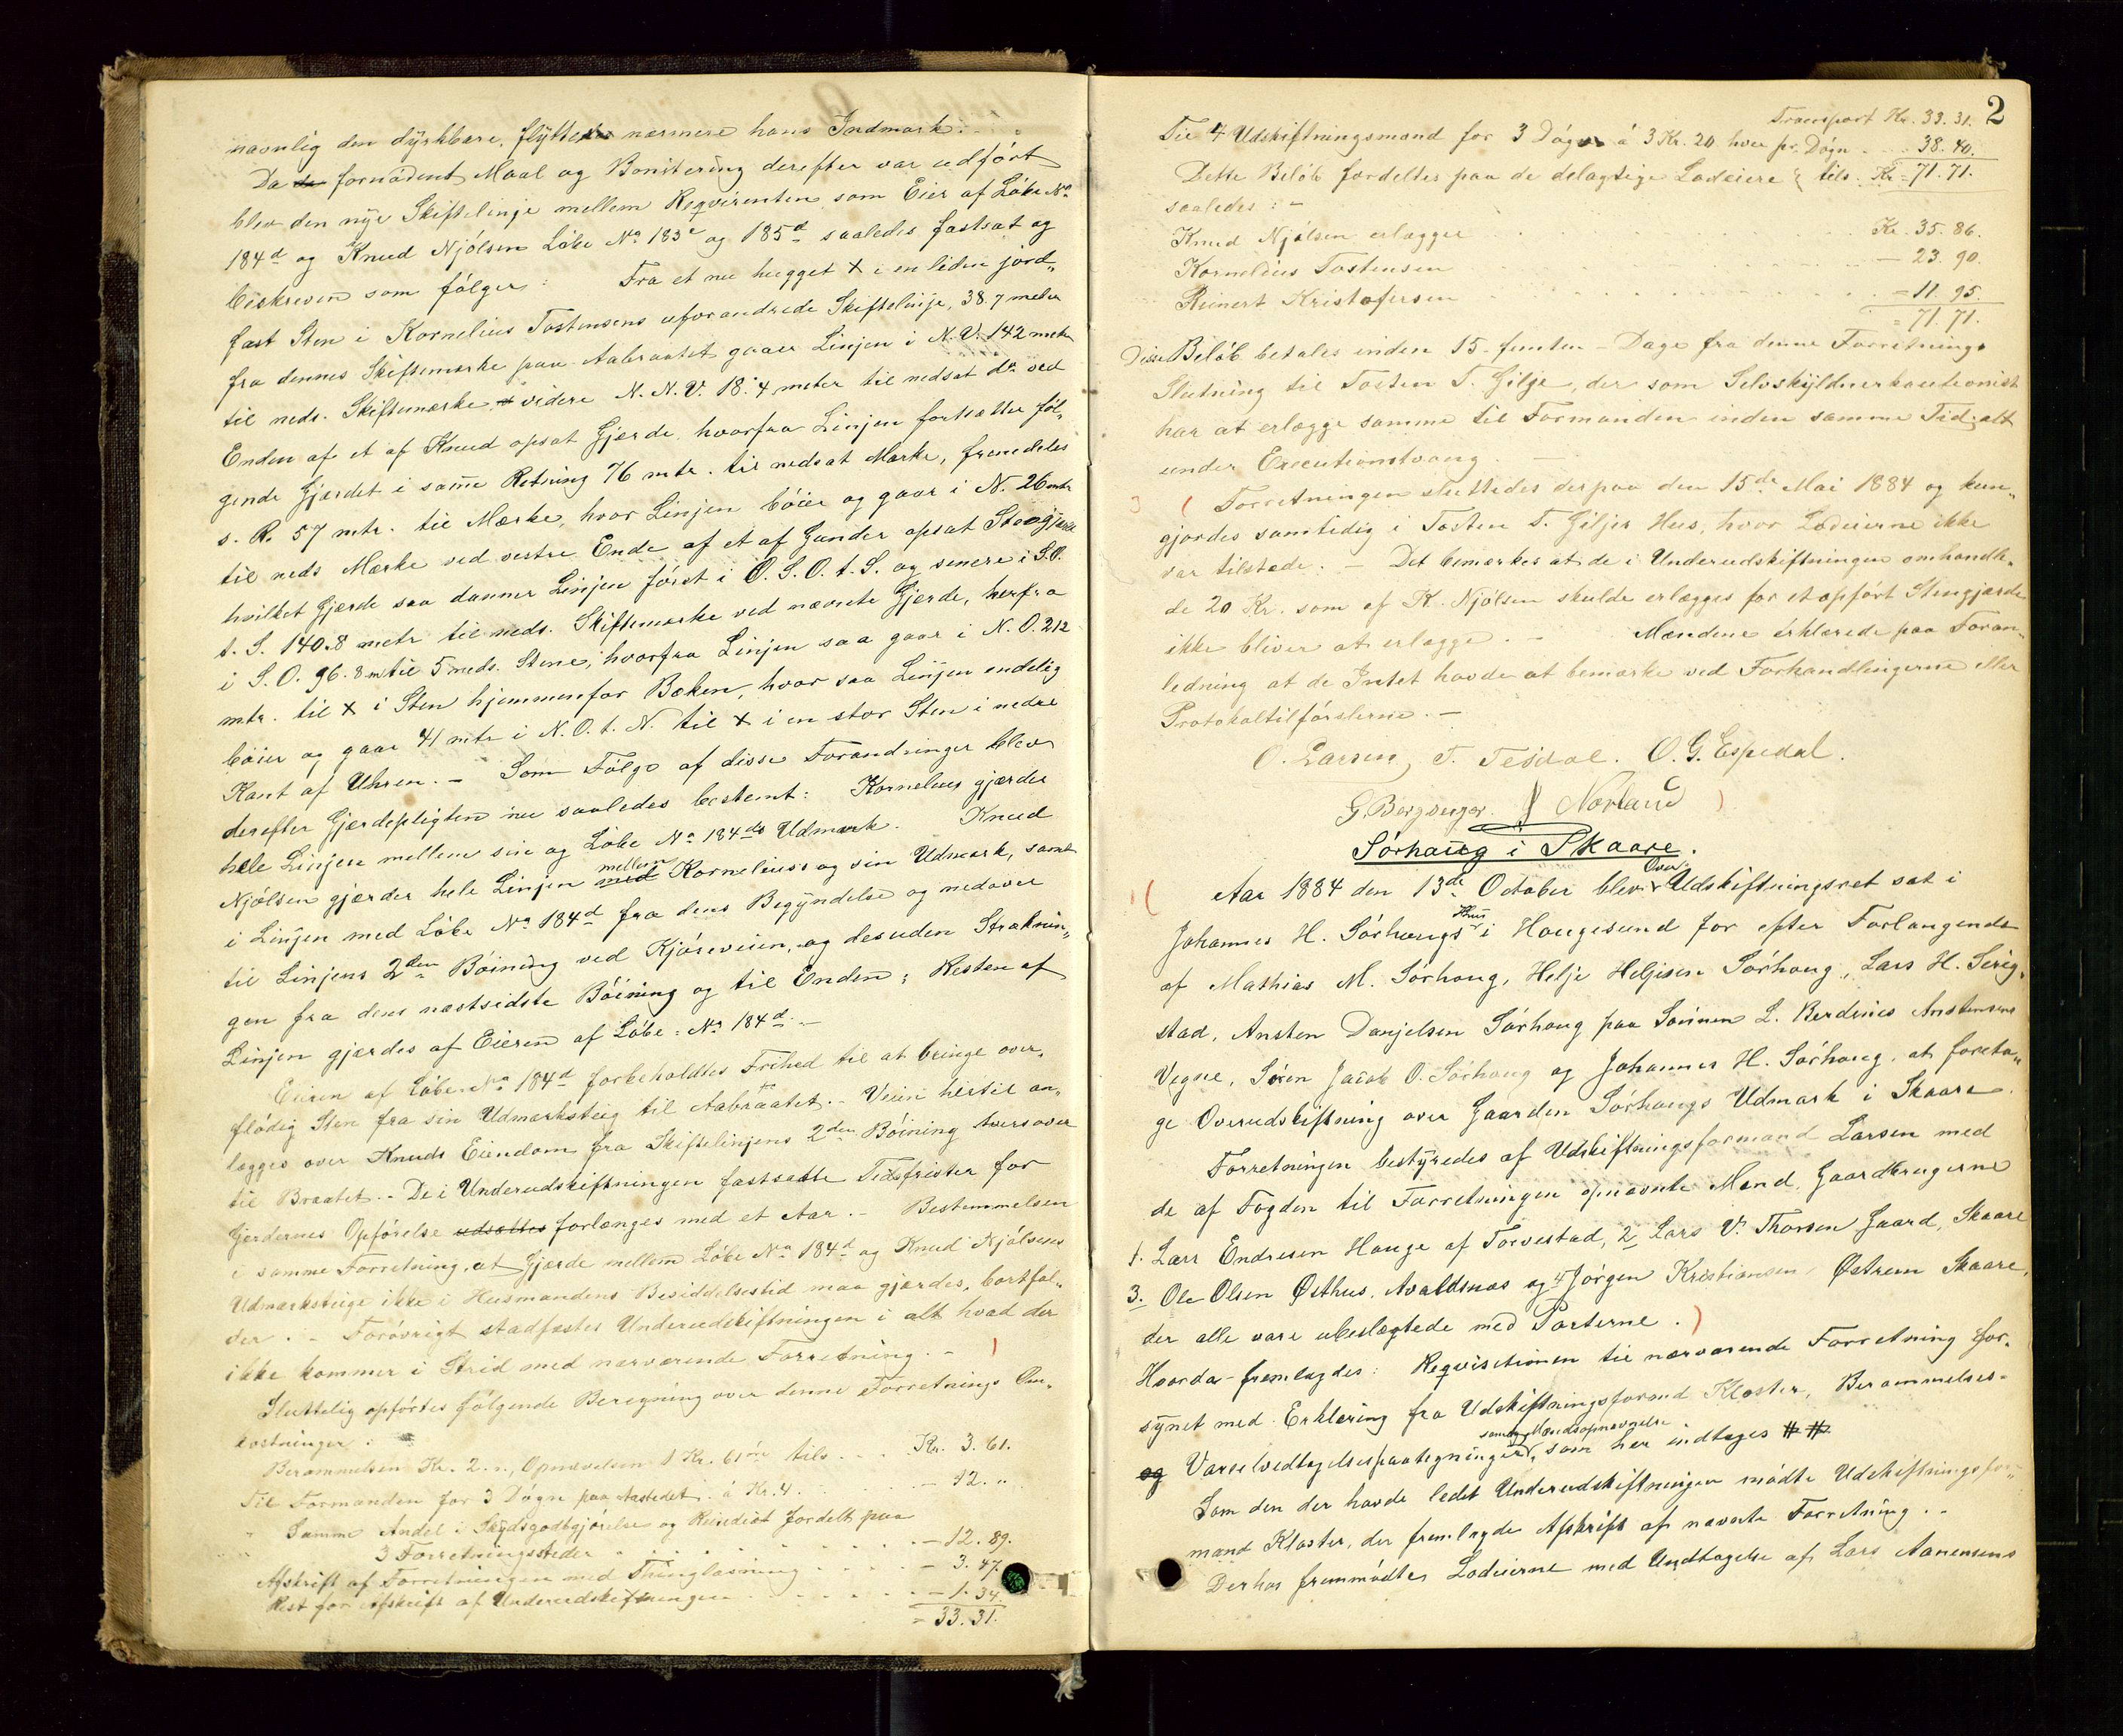 navnlig den dyrkbare, flyttedes nærmere hans Indmark. -
Da de fornødent Maal og Bonitering derefter var udført
blev den nye Skiftelinje mellem Reqvirenten som Eier af Løbe No
184d og Knud Njølsen Løbe No 183c og 185d saaledes fastsat og
beskreven som følger: Fra et nu hugget X i en liden jord-
fast Sten i Kornelius Tostensens uforandrede Skiftelinje, 38.7 meter
fra dennes Skiftemærke paa Aabraatet gaaer Linjen i N.V. 142 metr
til neds. Skiftemærke, videre N.N.V. 18.4 meter til nedsat do ved
Enden af et af Knud opsat Gjærde, hvorfra Linjen fortsætter føl-
gende Gjærdet i samme Retning 76 mtr. til nedsat Mærke, fremdeles
s. R. 57 mtr. til Mærke, hvor Linjen bøier og gaar i N. 26 mtr
til neds Mærke ved vestre Ende af et af Gunder opsat Stengjærde
hvilket Gjærde saa danner Linjen først i O.S.O.t.S. og senere i S.O.
t.S. 140.8 metr til neds. Skiftemærke ved nævnte Gjærde, herfra
i S.O. 96.8 m til 5 neds. Stene, hvorfra Linjen saa gaar i N.O. 212
mtr. til X i Sten hjemmenfor Bækken, hvor saa Linjen endelig
bøier og gaar 41 mtr i N.O.t.N. til X i en stor Sten i nedre
Kant af Uhren. - Som Følge af disse Forandringer blev
derefter Gjærdepligten nu saaledes bestemt: Kornelius gjærder
hele Linjen mellem sin og Løbe No 184ds Udmark. Knud
Njølsen gjærder hele Linjen med mellem Kornelius's og sin Udmark, samt
i Linjen med Løbe No 184d fra dens Begyndelse og nedover
til Linjens 2den Bøining ved Kjøreveien, og desuden Stræknin-
gen fra dens næstsidste Bøining og til Enden; Resten af
Linjen gjærdes af Eieren af Løbe-No 184d. -
Eieren af Løbe-No 184d forbeholdtes Frihed til at bringe over-
flødig Sten fra sin Udmarksteig til Aabraatet. - Veien hertil an-
lægges over Knuds Eiendom fra Skiftelinjens 2den Bøining tversover
til Braatet. - De i Underudskiftningen fastsatte Tidsfrister for
Gjerdernes Opførelse udsættes forlænges med et Aar. - Bestemmelsen
i samme Forretning, at Gjærde mellem Løbe No 184d og Knud Njølsens
Udmarksteige ikke i Husmandens Besiddelsestid maa gjærdes, bortfal-
der. - Forøvrigt stadfæstes Underudskiftningen i alt hvad der
ikke kommer i Strid med nærværende Forretning. -
Sluttelig opførtes følgende Beregning over denne Forretnings Om-
kostninger:
Berammelsen Kr. 2. „, Opnævelsen 1 Kr. 61 øre tils. . Kr. 3.61.
Til Formanden for 3 Døgn paa Aastedet á Kr. 4. - 12. „
„ Samme Andel i Skydsgodtgjørelse og Reisediæt fordelt paa
3 Forretningssteder - 12.89.
Afskrift af Forretningen med Thinglæsning - 3.47.
Rest for Afskrift af Underudskiftningen - 1.34.
= 33.31.
2
Transport Kr. 33.31.
Til 4 Udskiftningsmænd for 3 Døgn á 3 Kr. 20 hver pr. Døgn - 38.40.
Dette Beløb fordeltes paa de delagtige Lodeiere tils. Kr = 71.71.
saaledes: -
Knud Njølsen erlægger Kr. 35.86.
Kornelius Tostensen - 23.90.
Reinert Kristofersen - 11.95.
= 71.71.
Disse Beløb betales inden 15 - femten - Dage fra denne Forretnings
Slutning til Tosten T. Gilje, der som Selvskyldnerkautionist
har at erlægge samme til Formanden inden samme Tid, alt
under Executionstvang. -
Forretningen sluttedes derpaa den 15de Mai 1884 og kun-
gjordes samtidig i Tosten T. Giljes Hus, hvor Lodeierne ikke
var tilstede. - Det bemærkes at de i Underudskiftningen omhandle-
de 20 Kr. som af K. Njølsen skulde erlægges for et opført Stengjærde
ikke bliver at erlægge. - Mændene erklærede paa Foran-
ledning at de Intet havde at bemærke ved Forhandlingerne eller
Protokoltilførslerne. -
O. Larsen, T. Tesdal. O. G. Espedal.
G. Bergseger. Norland
Sørhaug i Skaare.
Aar 1884 den 13de October blev Over Udskiftningsret sat i
Johannes H. Sørhaugs Hus i Haugesund for efter Forlangende
af Mathias M. Sørhaug, Helje Heljesen Sørhaug, Lars H. Sevig-
stad, Ansten Danjelsen Sørhaug paa Sønnen L. Berdines Anstensens
Vegne, Søren Jacob O. Sørhaug og Johannes H. Sørhaug, at foreta-
ge Overudskiftning over Gaarden Sørhaugs Udmark i Skaare.
Forretningen bestyredes af Udskiftningsformand Larsen med
de af Fogden til Forretningen opnævnte Mænd, Gaardbrugerne
1. Lars Endresen Hauge af Torvestad, 2 Lars V. Thorsen Gaard, Skaare
3. Ole Olsen Østhus, Avaldsnæs og 4 Jørgen Kristiansen Østrem Skaare,
der alle vare ubeslægtede med Parterne.
Hvorda fremlagdes: Reqvisitionen til nærværende Forretning for-
synet med Erklæring fra Udskiftningsformd Kloster, Berammelses-
og Varselvedtagelsespaategninger, samt Mændsopnævnelse som her indtages # #
Som den der havde ledet Underudskiftningen mødte Udskiftningsfor-
mand Kloster, der fremlagde Afskrift af nævnte Forretning. -
Derhos fremmødte Lodeierne med Undtagelse af Lars Aanensens